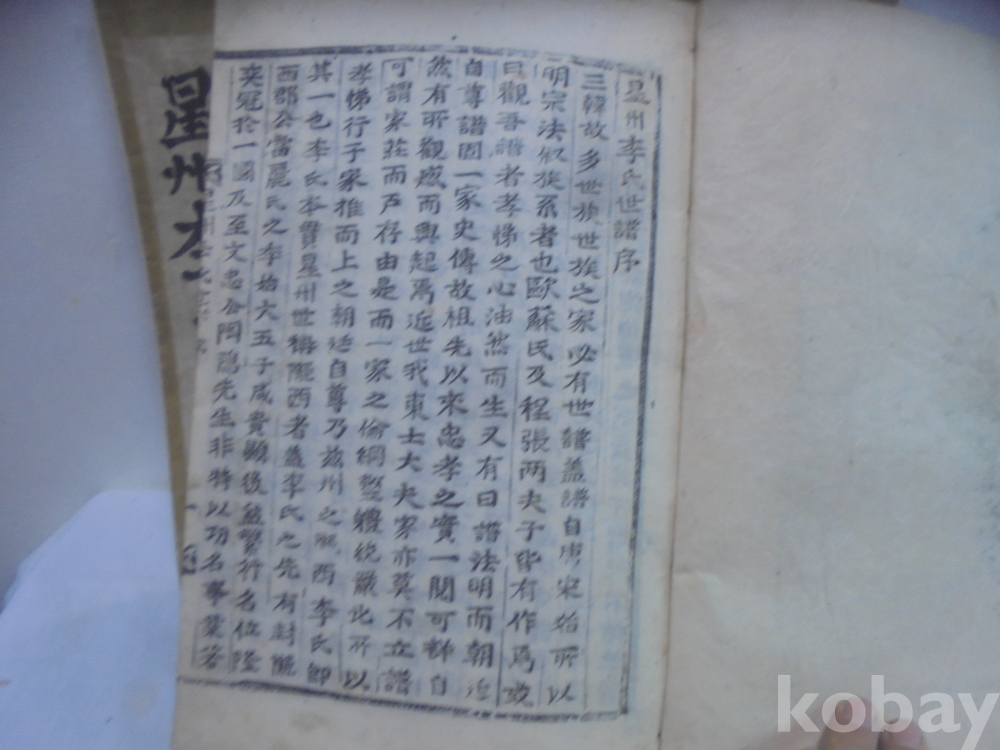 星州李氏世譜序
三韓故多世族世族之家必有世譜蓋譜自唐宋始所以
明宗法叙族系者也歐蘇氏及程張兩夫子皆有作焉或
曰觀吾譜者孝悌之心油然而生又有曰譜法明而朝廷
自尊譜固一家史傳故祖先以來忠孝之實一閱可詳自
然有所觀感而興起焉近世我東士大夫家亦莫不立譜
可謂家莊而戶存由是而一家之倫綱整禮統嚴此所以
孝悌行于家推而上之朝廷自尊乃玆州之隴西李氏卽
其一也李氏本貫星州世稱隴西者蓋李氏之先有封隴
西郡公當麗氏之季始六五子咸貴顯後益繁行名位隆
奕冠於一國及至文忠公陶隱先生非特以功名事業著
星州李
kobay